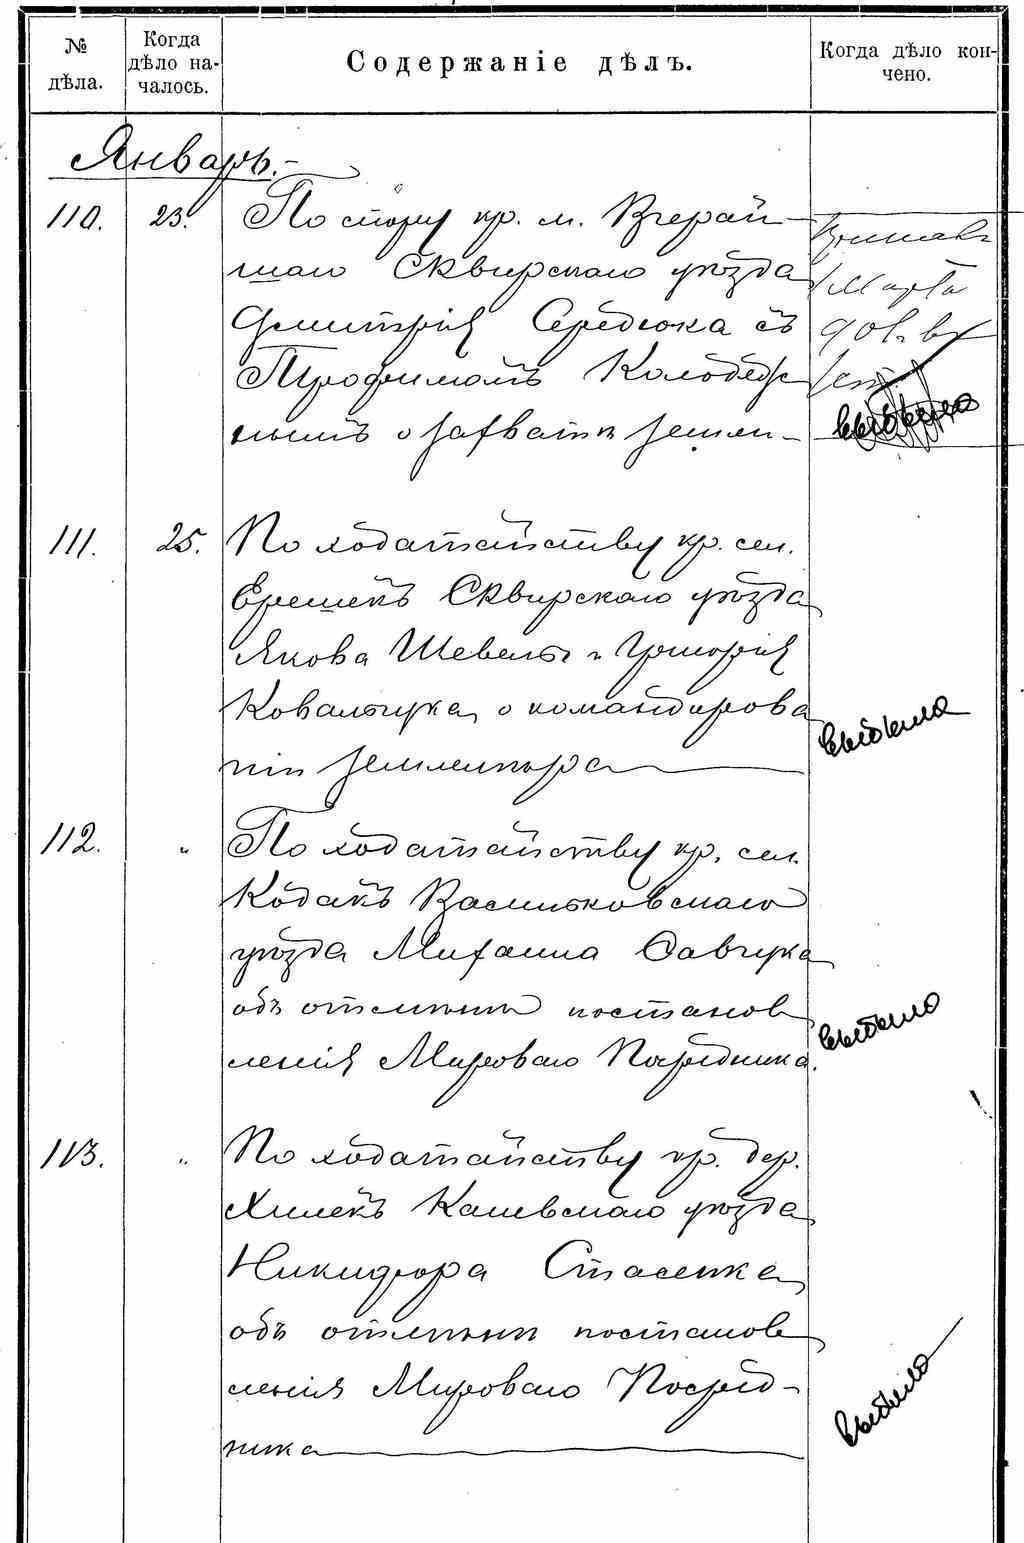 № дѣла.
Когда дѣло началось.
Содержаніе дѣлъ.
Когда дѣло кончено.
Январь.
110. 23. По спору кр. м. Вчерай
шаго Сквирскаго уѣзда
Дмитрія Сердюка съ
Трофимомъ Колодѣж
нымъ о захватѣ земли
Марта
выбыло
111. 25. По ходатайству кр. сел.
Ерешекъ Сквирскаго уѣзда
Якова Шевель и Григорія
Ковальчука о командирова
ніи землемѣра
выбыло
112. " По ходатайству кр. сел.
Кодакъ Васильковскаго
уѣзда Михаила Савчука
объ отмѣнѣ постанов
ленія Мироваго Посредника.
выбыло
113. " По ходатайству кр. дер.
Хилекъ Каневскаго уѣзда
Никифора Стасенка
объ отмѣнѣ постанов
ленія Мироваго Посред-
ника
выбыло